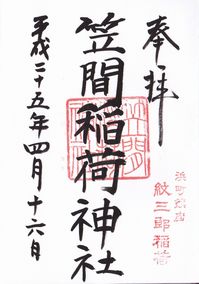 奉拝
笠間稲荷神社
平成二十五年四月十六日
紋三郎稲荷